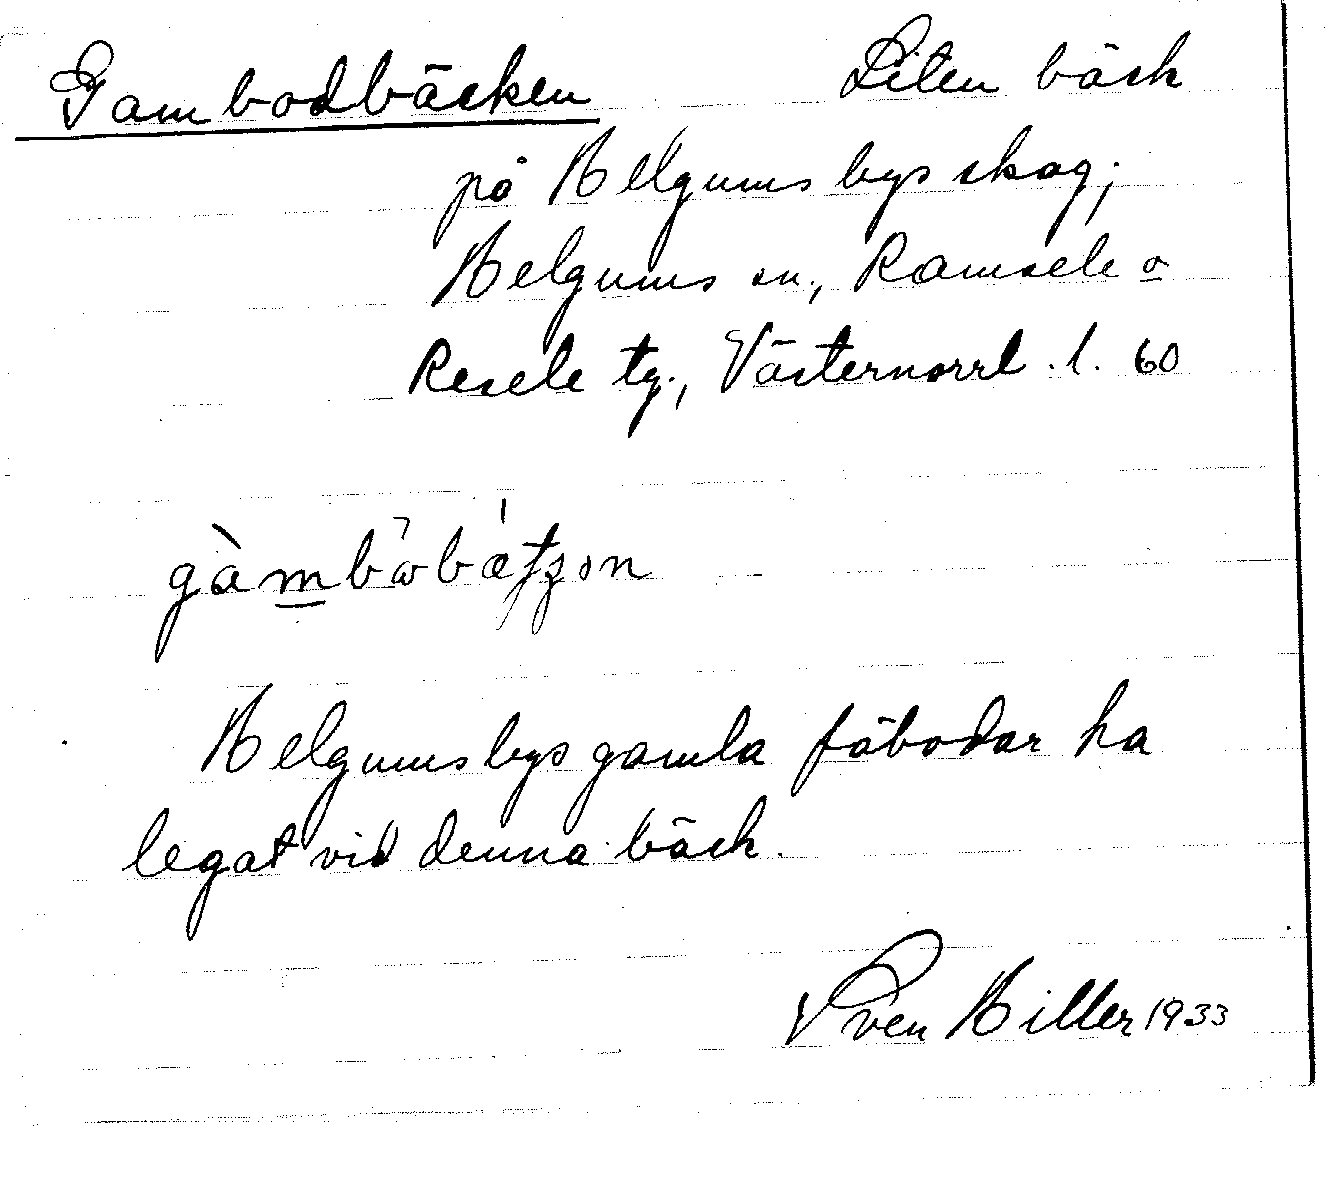 Gambodbäcken Liten bäck
på Helgums bys skog;
Helgums sn., Ramsele o
Resele tg., Västernorrl. l. 60
Helgums bys gamla fäbodar ha
legat vid denna bäck.
Sven Hiller 1933